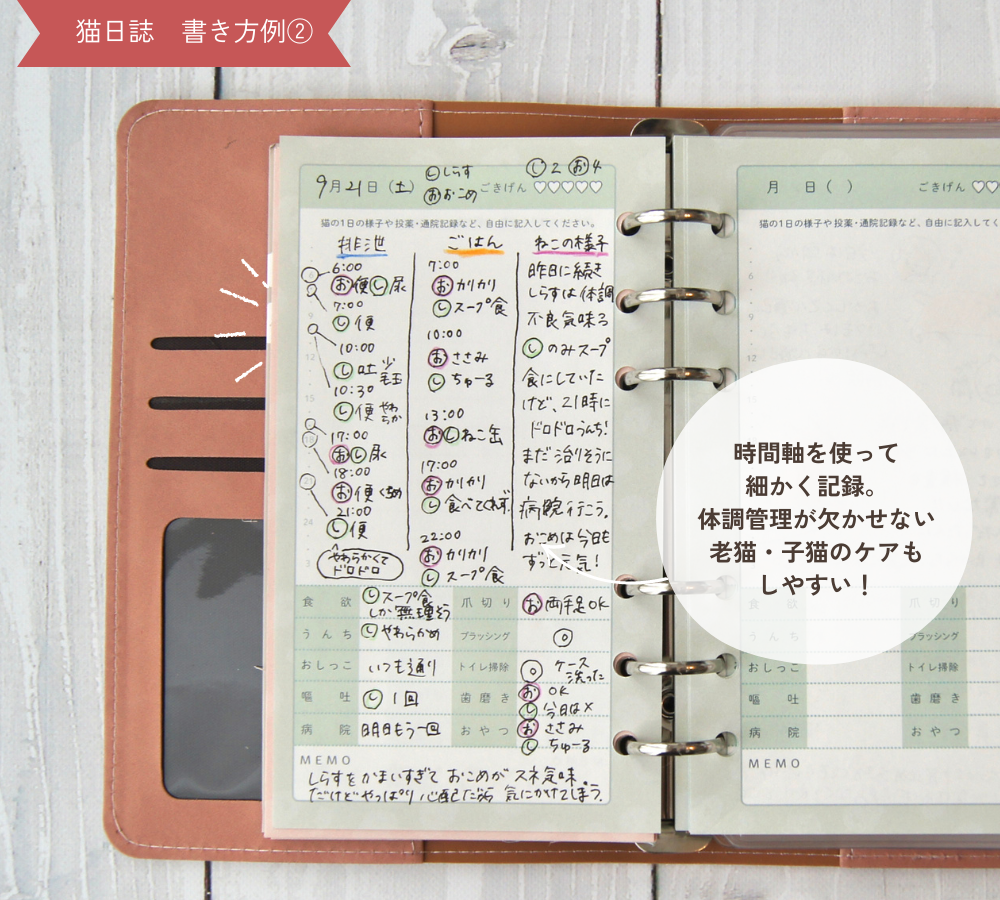 猫日誌　書き方例②
9月21日（土）
し しらす
お おこめ
ごきげん ♡♡♡♡♡
し2 お4
猫の1日の様子や投薬・通院記録など、自由に記入してください。
排泄
6:00
お便 し尿
7:00
し便
10:00
し吐 少毛玉
10:30
し便 やわらか
17:00
おし尿
18:00
お便 くさめ
21:00
し便
やわらかくて
ドロドロ
ごはん
7:00
お カリカリ
し スープ食
10:00
お ささみ
し ちゅーる
13:00
おし ねこ缶
17:00
お カリカリ
し 食べてくれず。
22:00
お カリカリ
し スープ食
ねこの様子
昨日に続き
しらすは体調
不良気味る
し のみスープ
食にしていた
けど、21時に
ドロドロうんち!
まだ治りそうに
ないから明日は
病院行こう。
おこめは今日も
ずっと元気!
食欲 し スープ食
しか無理そう
爪切り お 両手足OK
うんち し やわらかめ
ブラッシング ◎
おしっこ いつも通り
トイレ掃除 ◎ ケース
洗った
嘔吐 し 1回
歯磨き お OK
し 今日は×
病院 明日もう一回
おやつ お ささみ
し ちゅーる
MEMO
しらすをかまいすぎて おこめがスネ気味。
だけどやっぱり心配だから 気にかけてしまう。
月　日（　）
ごきげん ♡♡
猫の1日の様子や投薬・通院記録など、自由に記入して
時間軸を使って
細かく記録。
体調管理が欠かせない
老猫・子猫のケアも
しやすい！
食欲 爪切り
うんち ブラッシング
おしっこ トイレ掃除
嘔吐 歯磨き
病院 おやつ
MEMO